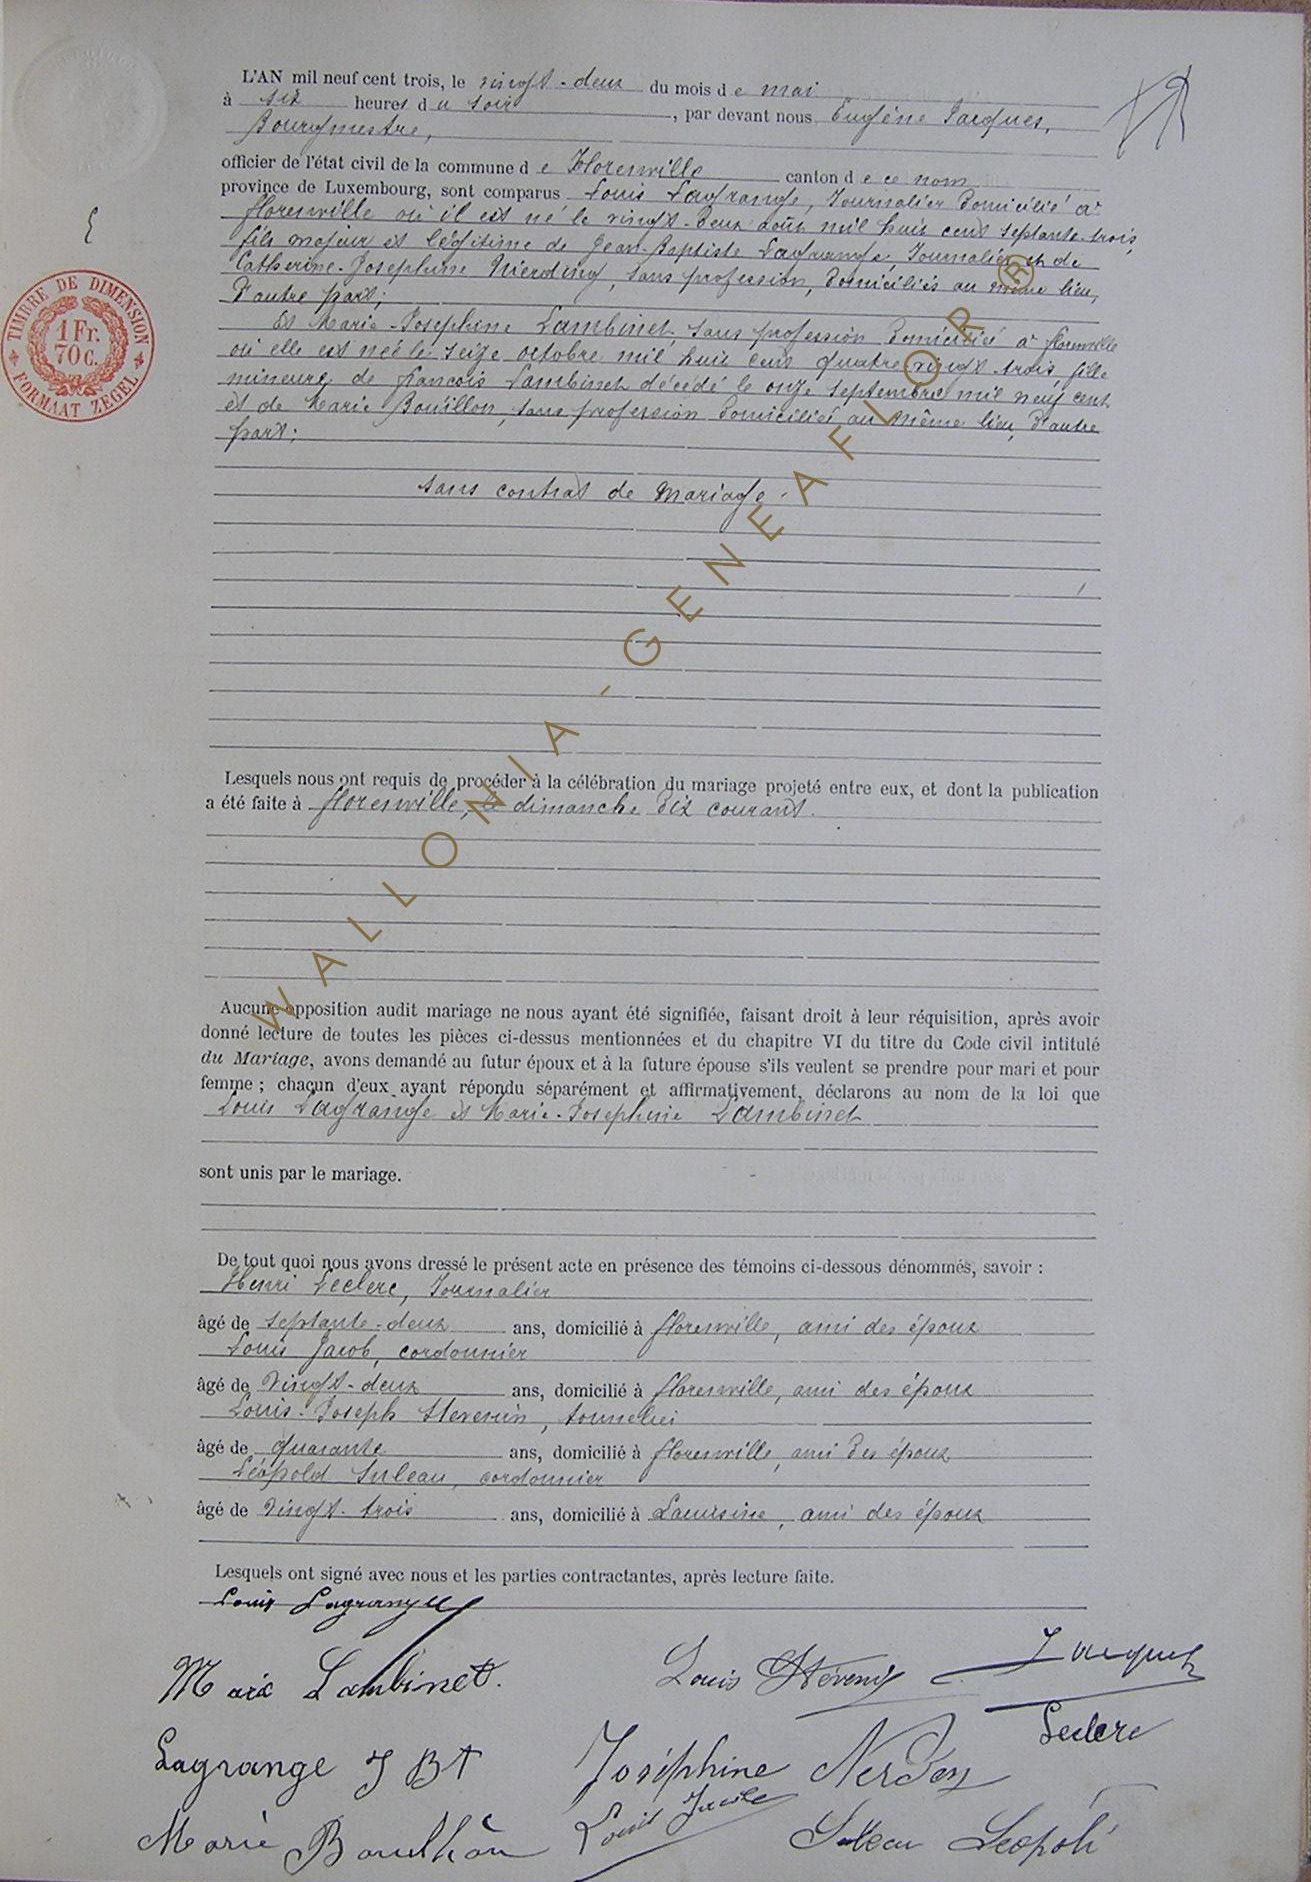 L'AN mil neuf cent trois, le vingt-deux du mois de mai
à six heures du soir, par devant nous Eugène Jacques,
Bourgmestre,
officier de l'état civil de la commune de Florenville canton de ce nom
province de Luxembourg, sont comparus Louis Lagrange, Journalier domicilié à
florenville où il est né le vingt-deux août mil huit cent septante-trois
fils majeur et légitime de Jean-Baptiste Lagrange, Journalier et de
Catherine-Josephine Nierding, sans profession, domiciliés au même lieu,
d'autre part;
Et Marie-Josephine Lambinet, sans profession domiciliée à florenville
où elle est née le seize octobre mil huit cent quatre vingt-trois, fille
mineure de François Lambinet décédé le onze septembre mil neuf cent
et de Marie Bouillon, sans profession domiciliée au même lieu, d'autre
part;
sans contrat de mariage.
Lesquels nous ont requis de procéder à la célébration du mariage projeté entre eux, et dont la publication
a été faite à florenville, le dimanche dix courant.
Aucune opposition audit mariage ne nous ayant été signifiée, faisant droit à leur réquisition, après avoir
donné lecture de toutes les pièces ci-dessus mentionnées et du chapitre VI du titre du Code civil intitulé
du Mariage, avons demandé au futur époux et à la future épouse s'ils veulent se prendre pour mari et pour
femme ; chacun d'eux ayant répondu séparément et affirmativement, déclarons au nom de la loi que
Louis Lagrange et Marie-Josephine Lambinet
sont unis par le mariage.
De tout quoi nous avons dressé le présent acte en présence des témoins ci-dessous dénommés, savoir :
Henri Leclerc, Journalier
âgé de septante-deux ans, domicilié à florenville, ami des époux
Louis Jacob, cordonnier
âgé de vingt-deux ans, domicilié à florenville, ami des époux
Louis-Joseph Stevenin, tonnelier
âgé de quarante ans, domicilié à florenville, ami des époux
Léopold Suleau, cordonnier
âgé de vingt-trois ans, domicilié à Lacuisine, ami des époux
Lesquels ont signé avec nous et les parties contractantes, après lecture faite.
Louis Lagrange
Marie Lambinet. Louis Stévenin Jacques
Leclerc
Lagrange J Bt Joséphine Nerden
Marie Bouillon Louis Jacob Suleau Léopold
TIMBRE DE DIMENSION
1 Fr.
70 C.
FORMAAT ZEGEL
WALLONIA-GENEAFLOR ®